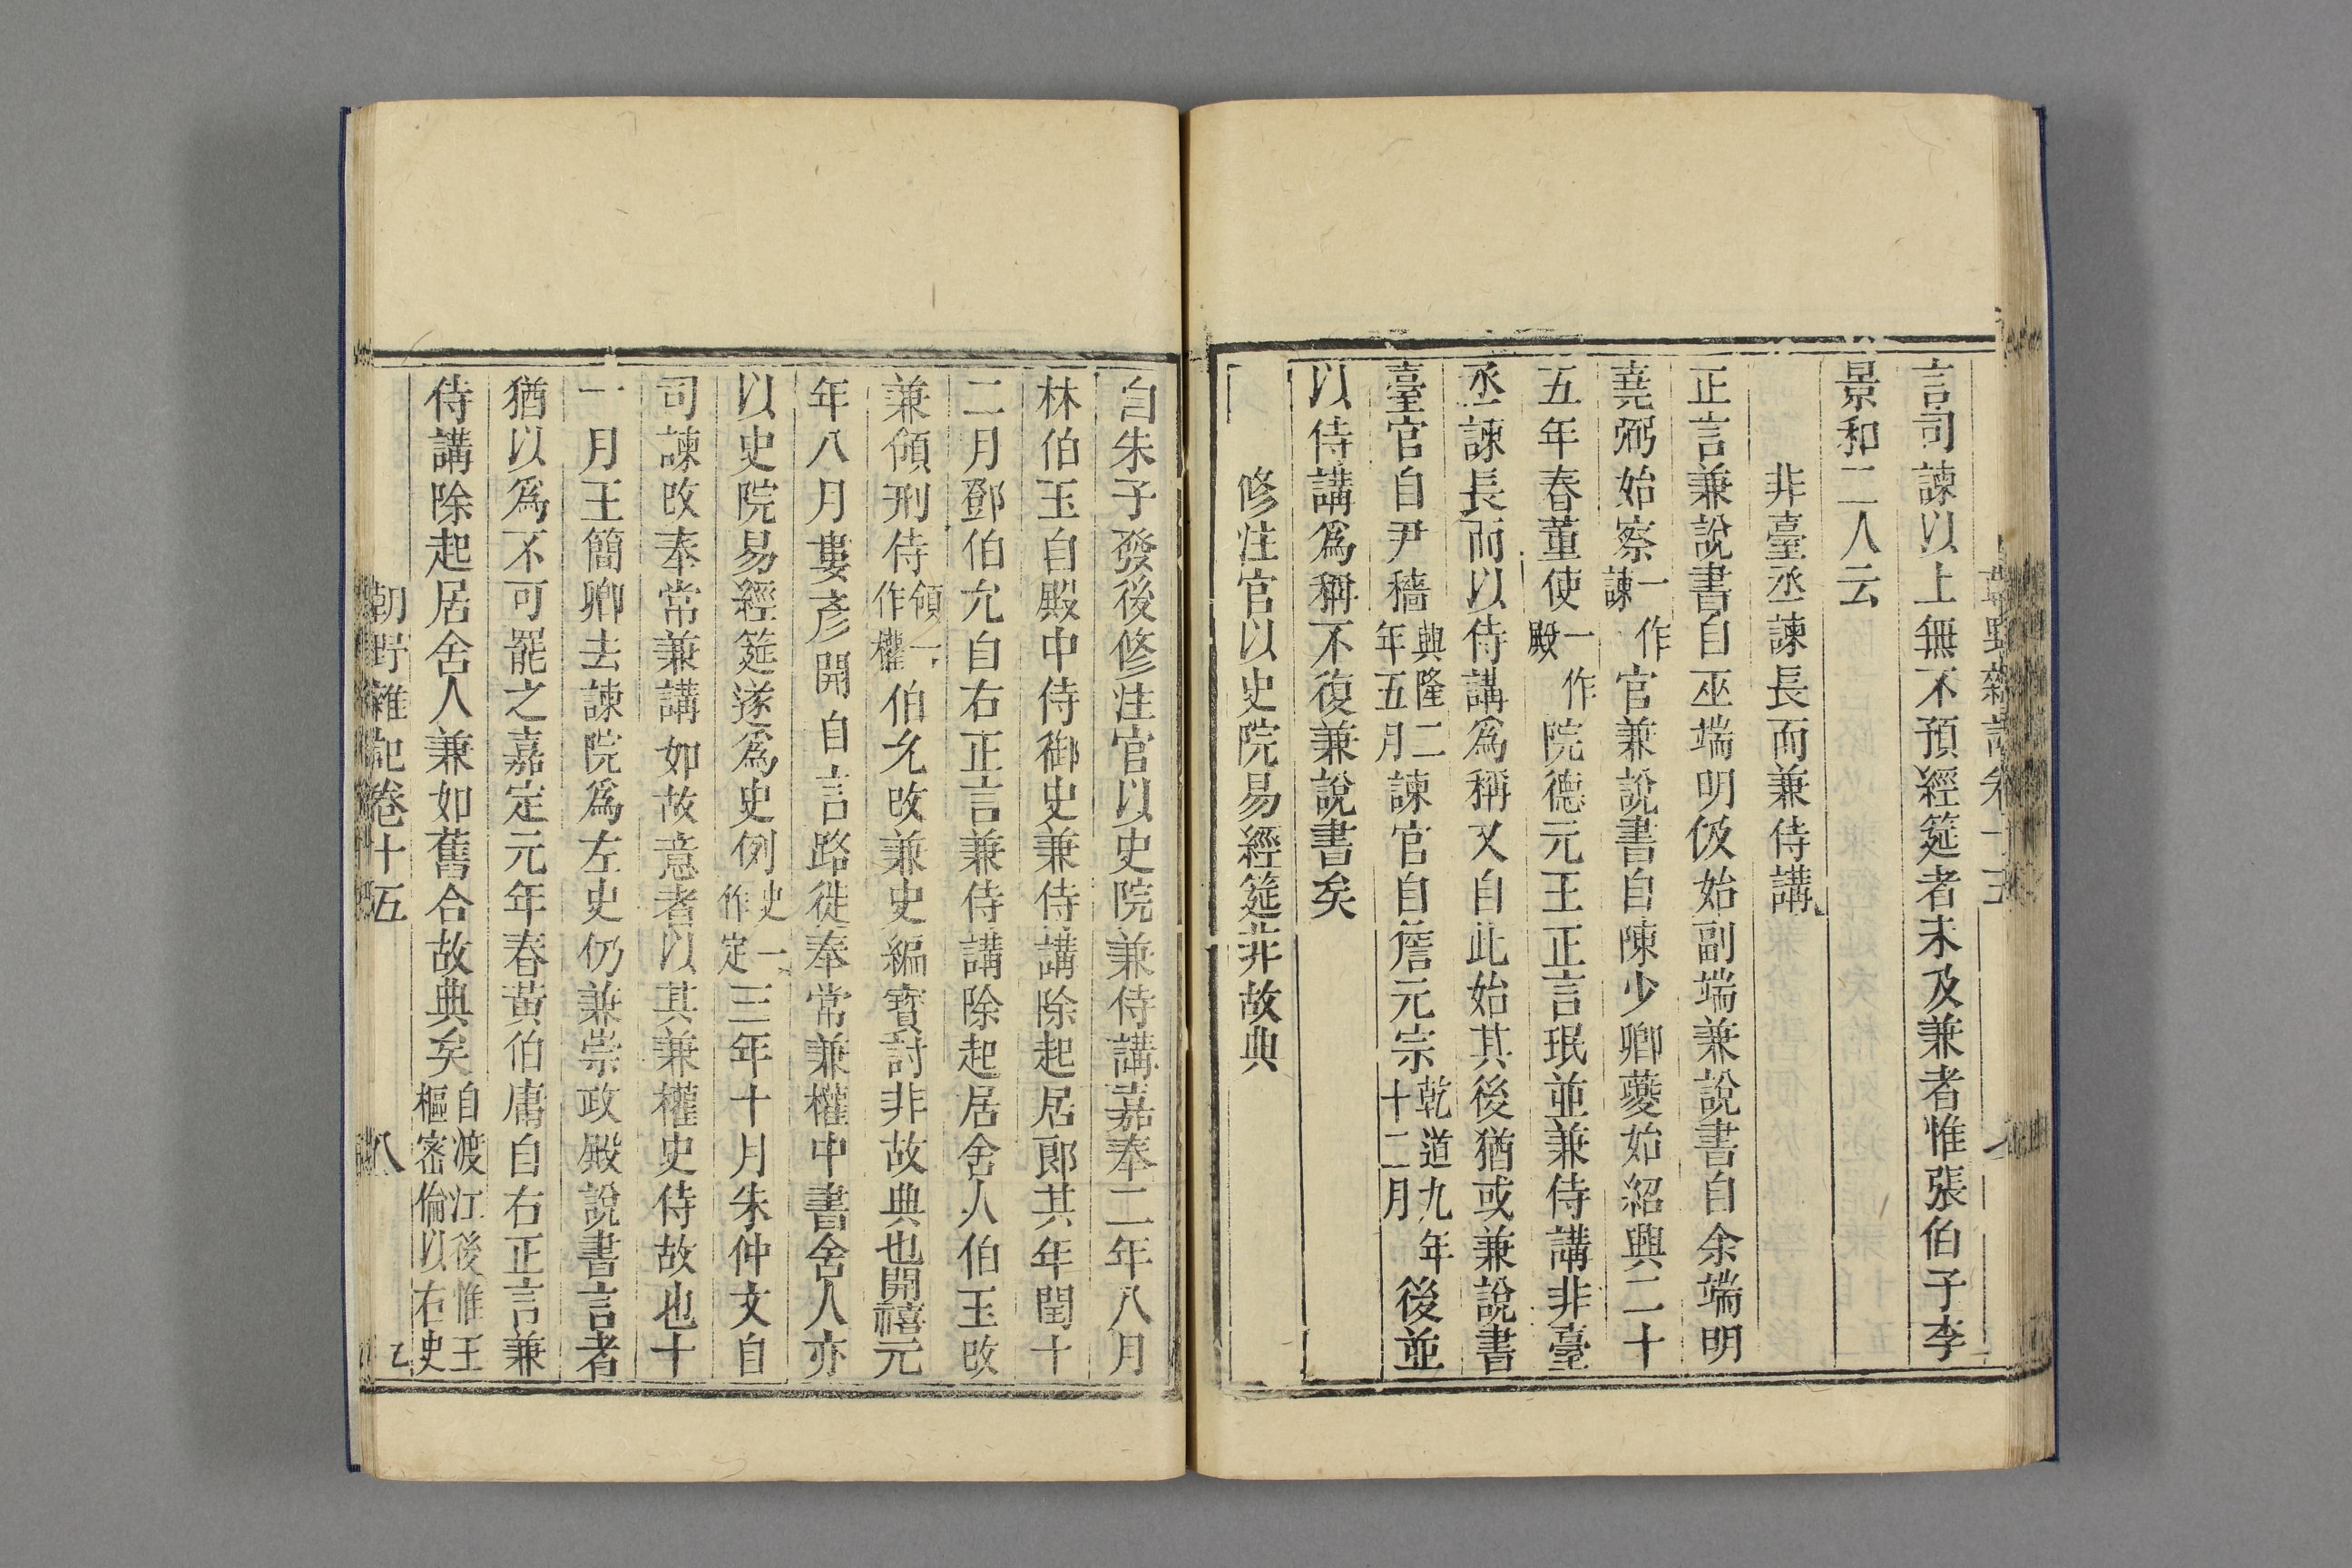 言司諫以上無不預經筵者未及兼者惟張伯子李
景和二人云
非臺丞諫長而兼侍講
正言兼說書自巫端明伋始副端兼說書自余端明
堯弼始察一作諫官兼說書自陳少卿夔始紹興二十
五年春董使一作殿院德元王正言珉並兼侍講非臺
丞諫長而以侍講爲稱又自此始其後猶或兼說書
臺官自尹穡興隆二年五月諫官自詹元宗乾道九年十二月後並
以侍講爲稱不復兼說書矣
修注官以史院易經筵非故典
自朱子發後修注官以史院兼侍講嘉奉二年八月
林伯玉自殿中侍御史兼侍講除起居郎其年閏十
二月鄧伯允自右正言兼侍講除起居舍人伯玉改
兼傾刑侍領一作權伯允改兼史編寶討非故典也開禧元
年八月婁彥開自言路徙奉常兼權中書舍人亦
以史院易經筵遂爲史例史一作定三年十月朱仲文自
司諫改奉常兼講如故意者以其兼權史侍故也十
一月王簡卿去諫院爲左史仍兼崇政殿說書言者
猶以爲不可罷之嘉定元年春黃伯庸自右正言兼
侍講除起居舍人兼如舊合故典矣自渡江後惟王樞密倫以右史
朝野雜記卷十五 八